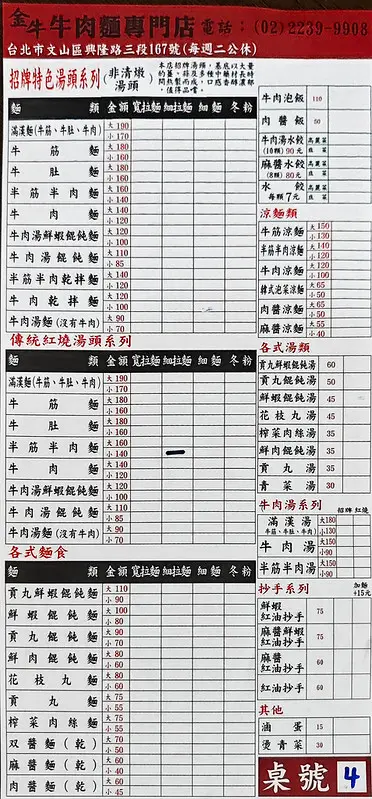 金牛牛肉麵專門店 電話:(02)2239-9908
台北市文山區興隆路三段167號(每週二公休)
招牌特色湯頭系列(非清燉湯頭)
麵 類 金額 寬拉麵 細拉麵 細麵 冬粉
滿漢麵(牛筋、牛肚、牛肉) 大190 小170
牛筋麵 大180 小160
牛肚麵 大180 小160
半筋半肉麵 大160 小140
牛肉麵 大140 小120
牛肉湯鮮蝦餛飩麵 大120 小100
牛肉湯餛飩麵 大110 小85
半筋半肉乾拌麵 大140 小120
牛肉乾拌麵 大120 小100
牛肉湯麵(沒有牛肉) 大90 小70
傳統紅燒湯頭系列
麵 類 金額 寬拉麵 細拉麵 細麵 冬粉
滿漢麵(牛筋、牛肚、牛肉) 大190 小170
牛筋麵 大180 小160
牛肚麵 大180 小160
半筋半肉麵 大160 小140
牛肉麵 大140 小120
牛肉湯鮮蝦餛飩麵 大120 小100
牛肉湯餛飩麵 大110 小85
牛肉湯麵(沒有牛肉) 大90 小70
各式麵食
麵 類 金額 寬拉麵 細拉麵 細麵 冬粉
貢丸鮮蝦餛飩麵 大110 小90
鮮蝦餛飩麵 大100 小80
貢丸餛飩麵 大90 小70
鮮肉餛飩麵 大80 小60
花枝丸麵 大80 小60
貢丸麵 大75 小55
榨菜肉絲麵 大75 小55
双醬麵(乾) 大70 小50
麻醬麵(乾) 大60 小40
肉醬麵(乾) 大60 小45
牛肉泡飯 110
肉醬飯 50
牛肉湯水餃 (10顆)90元 高麗菜 韭菜
麻醬水餃 (8顆)80元 高麗菜 韭菜
水餃 每顆7元 高麗菜 韭菜
涼麵類
牛筋涼麵 大150 小130
半筋半肉涼麵 大140 小120
牛肉涼麵 大120 小100
韓式泡菜涼麵 大65 小50
肉醬涼麵 大65 小50
麻醬涼麵 大55 小40
各式湯類
貢丸鮮蝦餛飩湯 60
貢丸餛飩湯 50
鮮蝦餛飩湯 45
花枝丸湯 45
榨菜肉絲湯 35
鮮肉餛飩湯 35
貢丸湯 35
青菜湯 30
牛肉湯系列 招牌 紅燒
滿漢湯 牛筋、牛肚、牛肉 大180 小130
牛肉湯 大150 小90
半筋半肉湯 大150 小90
抄手系列 加麵+15元
鮮蝦紅油抄手 75
麻醬鮮蝦紅油抄手 75
麻醬紅油抄手 60
紅油抄手 60
其他
滷蛋 15
燙青菜 30
桌號 4